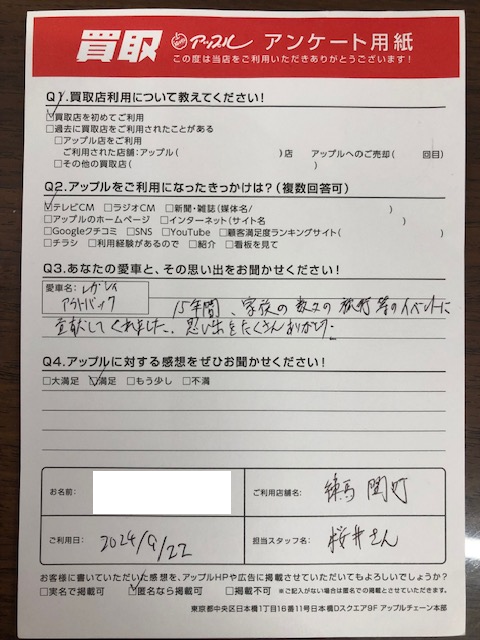 買取 アップル アンケート用紙
この度は当店をご利用いただきありがとうございます！
Q1.買取店利用について教えてください！
☑買取店を初めてご利用
□過去に買取店をご利用されたことがある
□アップル店をご利用
ご利用された店舗：アップル（ ）店 アップルへのご売却（ 回目）
□その他の買取店（ ）
Q2.アップルをご利用になったきっかけは？（複数回答可）
☑テレビCM □ラジオCM □新聞・雑誌（媒体名/ ）
□アップルのホームページ □インターネット（サイト名 ）
□Googleクチコミ □SNS □YouTube □顧客満足度ランキングサイト（ ）
□チラシ □利用経験があるので □紹介 □看板を見て
Q3.あなたの愛車と、その思い出をお聞かせください！
愛車名：レガシィ
アウトバック
15年間、家族の数々の旅行等のイベントに
貢献してくれました。思い出をたくさんありがとう。
Q4.アップルに対する感想をぜひお聞かせください！
□大満足 ☑満足 □もう少し □不満
お名前： ご利用店舗名： 練馬関町
ご利用日： 2024/9/22 担当スタッフ名： 桜井さん
お客様に書いていただいた感想を、アップルHPや広告に掲載させていただいてもよろしいでしょうか？
□実名で掲載可 ☑匿名なら掲載可 □掲載不可 ※ご記入がない場合は匿名での掲載とさせていただきます。
東京都中央区日本橋1丁目16番11号日本橋Dスクエア9F アップルチェーン本部